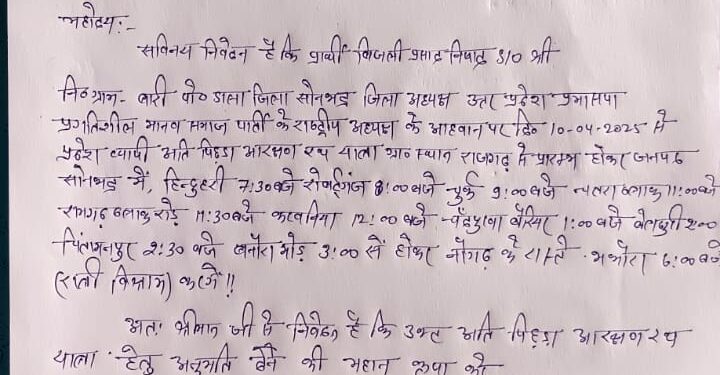 महोदय:-
सविनय निवेदन है कि प्रार्थी बिजली प्रसाद निषाद S/O श्री
नि० ग्राम- बारी पो० डाला जिला सोनभद्र जिला अध्यक्ष उत्तर प्रदेश प्रमासपा
प्रगतिशील मानव समाज पार्टी के राष्ट्रीय अध्यक्ष के आहवान पर दि० 10-04-2025 से
प्रदेश व्यापी अति पिछड़ा आरक्षण रथ यात्रा स्थान राजगढ़ से प्रारम्भ होकर जनपद
सोनभद्र में, हिन्दुहरी 7:30 बजे 8:00 बजे चुर्क 9:00 बजे ब्लाक 11:00 बजे
रामगढ़ ब्लाक रोड़ 11:30 बजे 12:00 बजे 1:00 बजे 2:00
2:30 बजे मोड़ 3:00 से होकर नौगढ़ के रास्ते 6:00 बजे
(रात्री विश्राम) करेंगे!!
अतः श्रीमान जी से निवेदन है कि उक्त अति पिछड़ा आरक्षण रथ
यात्रा हेतु अनुमति देने की महान कृपा करे